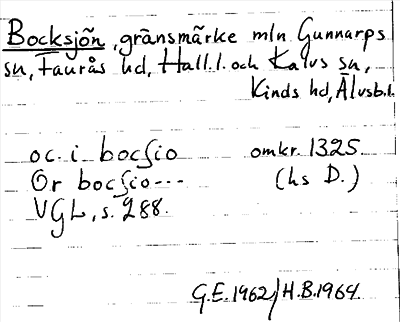 Bocksjön, gränsmärke mln Gunnarps
sn, Faurås hd, Hall.l. och Kalvs sn,
Kinds hd, Älvsb.l.
oc. i bocſio omkr. 1325.
Or bocſio--- (hs D.)
VGL, s. 288.
G.E. 1962/H.B. 1964.